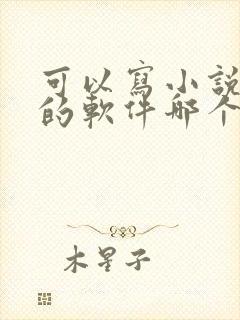 可以寫小説
的軟件哪个
木星子